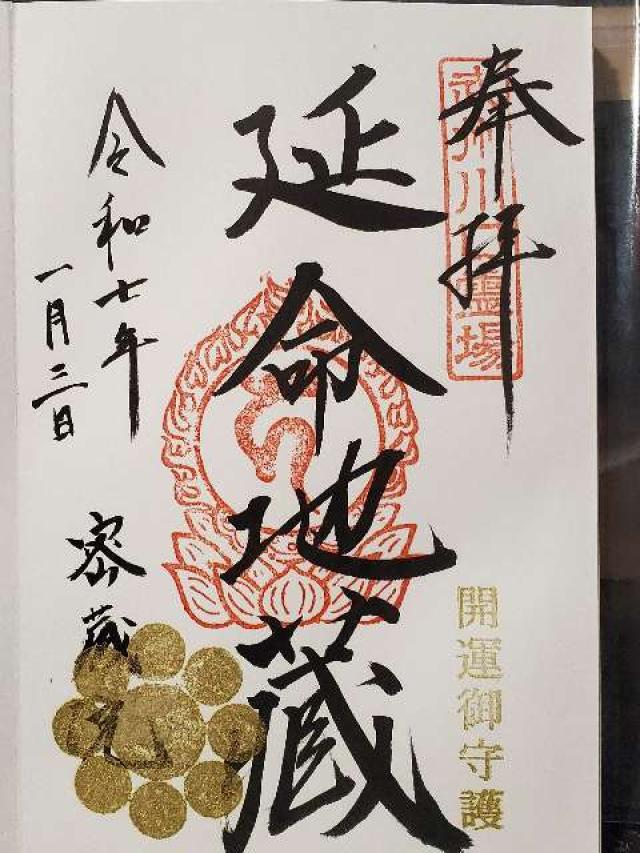 奉拝
川口霊場
延命地蔵
開運御守護
令和七年
一月三日
密蔵院